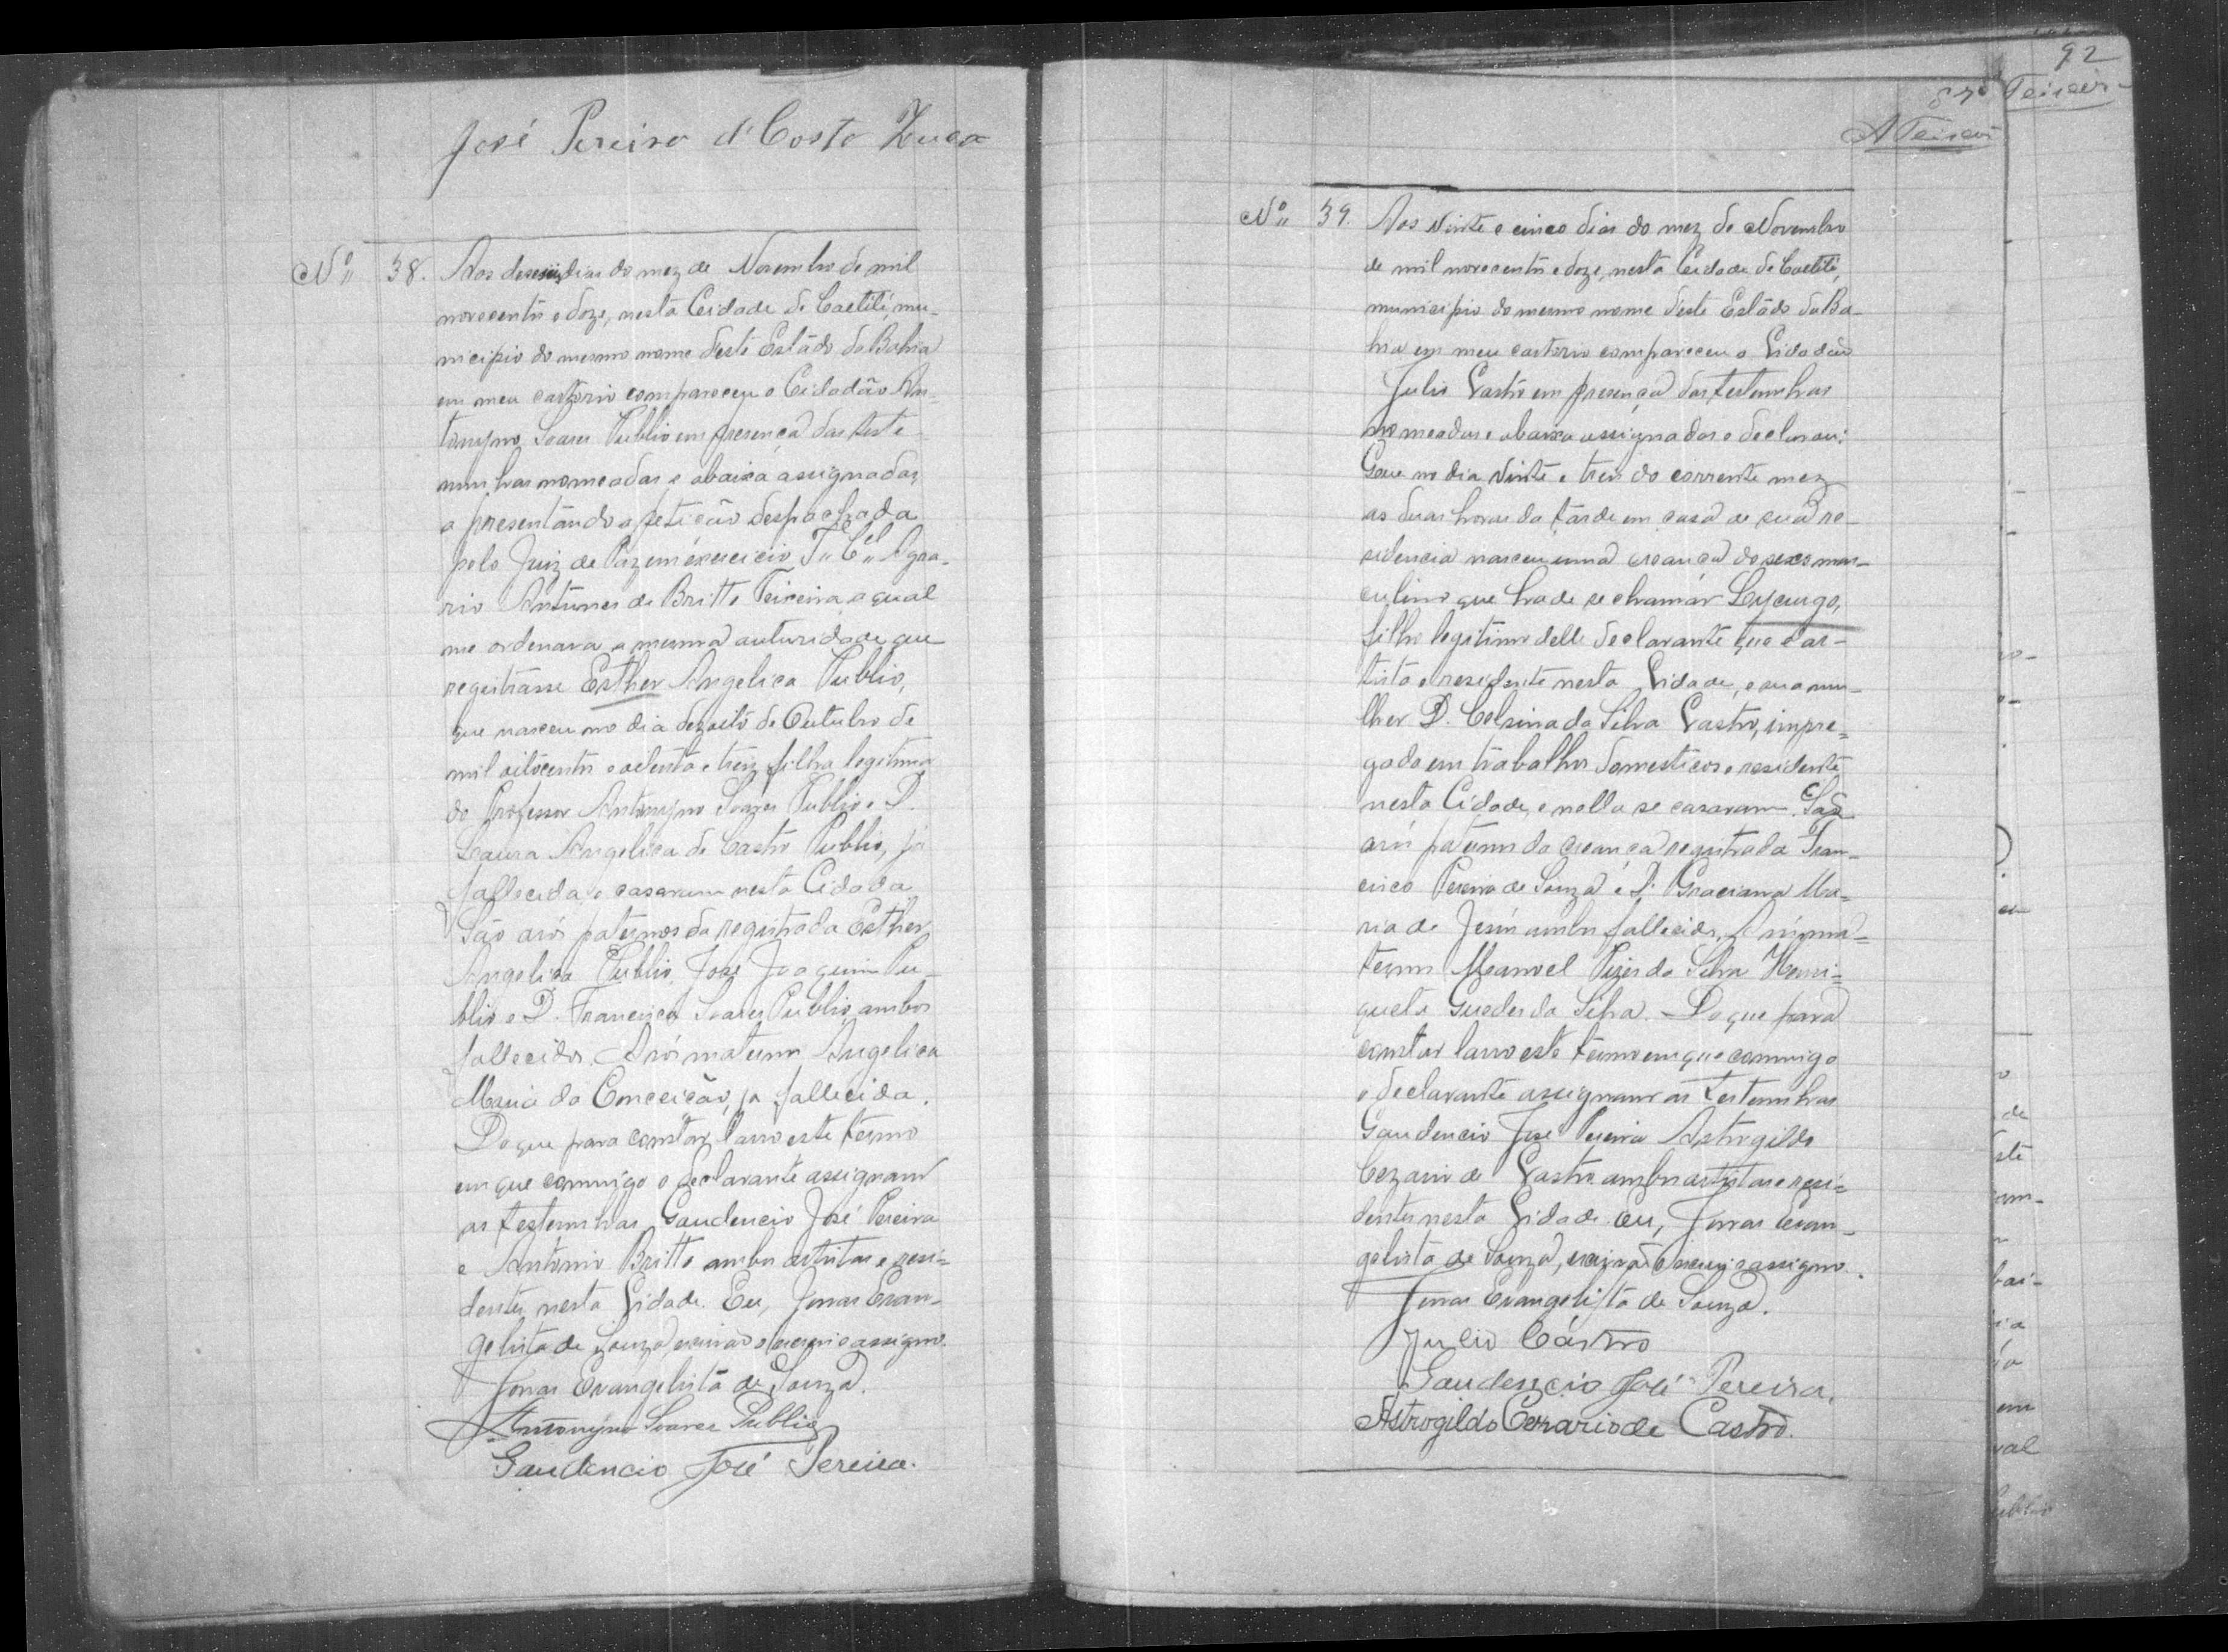 José Pereira d'Costa Zuca
Nº 38. Aos deseseis dias do mez de Novembro de mil
novecentos e doze, nesta Cidade de Caetité, mu-
nicipio do mesmo nome deste Estado da Bahia
em meu cartorio compareceu o Cidadão An-
tonyno Soares Publio em presença das teste-
munhas nomeadas e abaixo assignadas,
apresentando a petição despachada
pelo Juiz de Paz em exercicio T. Cel. Agra-
rio Antunes de Britto Teixeira, a qual
me ordenava a mesma auturidade que
registrasse Esther Angelica Publio,
que nasceu no dia dezoito de Outubro de
mil oitocentos e oitenta e trez, filha legitima
do Professor Antonyno Soares Publio e D.
Laura Angelica de Castro Publio, já
fallecida, e casaram nesta Cidade
São avós paternos da registrada Esther
Angelica Publio, José Joaquim Pu-
blio e D. Francisca Soares Publio, ambos
fallecidos. Avós maternos Angelica
Maria da Conceição, ja fallecida.
Do que para constar, lavro este termo
em que commigo o declarante assignam
as testemunhas Gaudencio José Pereira
e Antonio Britto ambos artistas e resi-
dentes nesta Cidade. Eu, Jonas Evan-
gelista de Souza, escrivão o escrevi e assigno.
Jonas Evangelista de Souza.
Antonyno Soares Publio
Gaudencio José Pereira.
92
Teixeira
87
ATeixeira
Nº 39. Aos vinte e cinco dias do mez de Novembro
de mil novecentos e doze, nesta Cidade de Caetité,
municipio do mesmo nome deste Estado da Ba-
hia em meu cartorio compareceu o Cidadão
Julio Castro em presença das testemunhas
nomeadas e abaixo assignadas e declarou:
Que no dia vinte e tres do corrente mez
as duas horas da tarde em casa de sua re-
sidencia nasceu uma creança do sexo mas-
culino que hade se chamar Lycurgo,
filho legitimo delle declarante que é ar-
tista e residente nesta Cidade, e sua mu-
lher D. Celsina da Silva Castro, impre-
gada em trabalhos domesticos e residente
nesta Cidade, e nella se casaram. São
avós paternos da creança registrada Fran-
cisco Pereira de Souza e D. Graciana Ma-
ria de Jesus ambos fallecidos. Avós ma-
ternos Manoel Pires da Silva Henri-
queta Guedes da Silva. Do que para
constar lavro este termo em que commigo
o declarante assignam as testemunhas
Gaudencio José Pereira Astrogildo
Cezario de Castro ambos artistas e resi-
dentes nesta Cidade. Eu, Jonas Evan-
gelista de Souza, escrivão o escrevi e assigno.
Jonas Evangelista de Souza.
Julio Cástro
Gaudencio José Pereira,
Astrogildo Cezario de Castro.